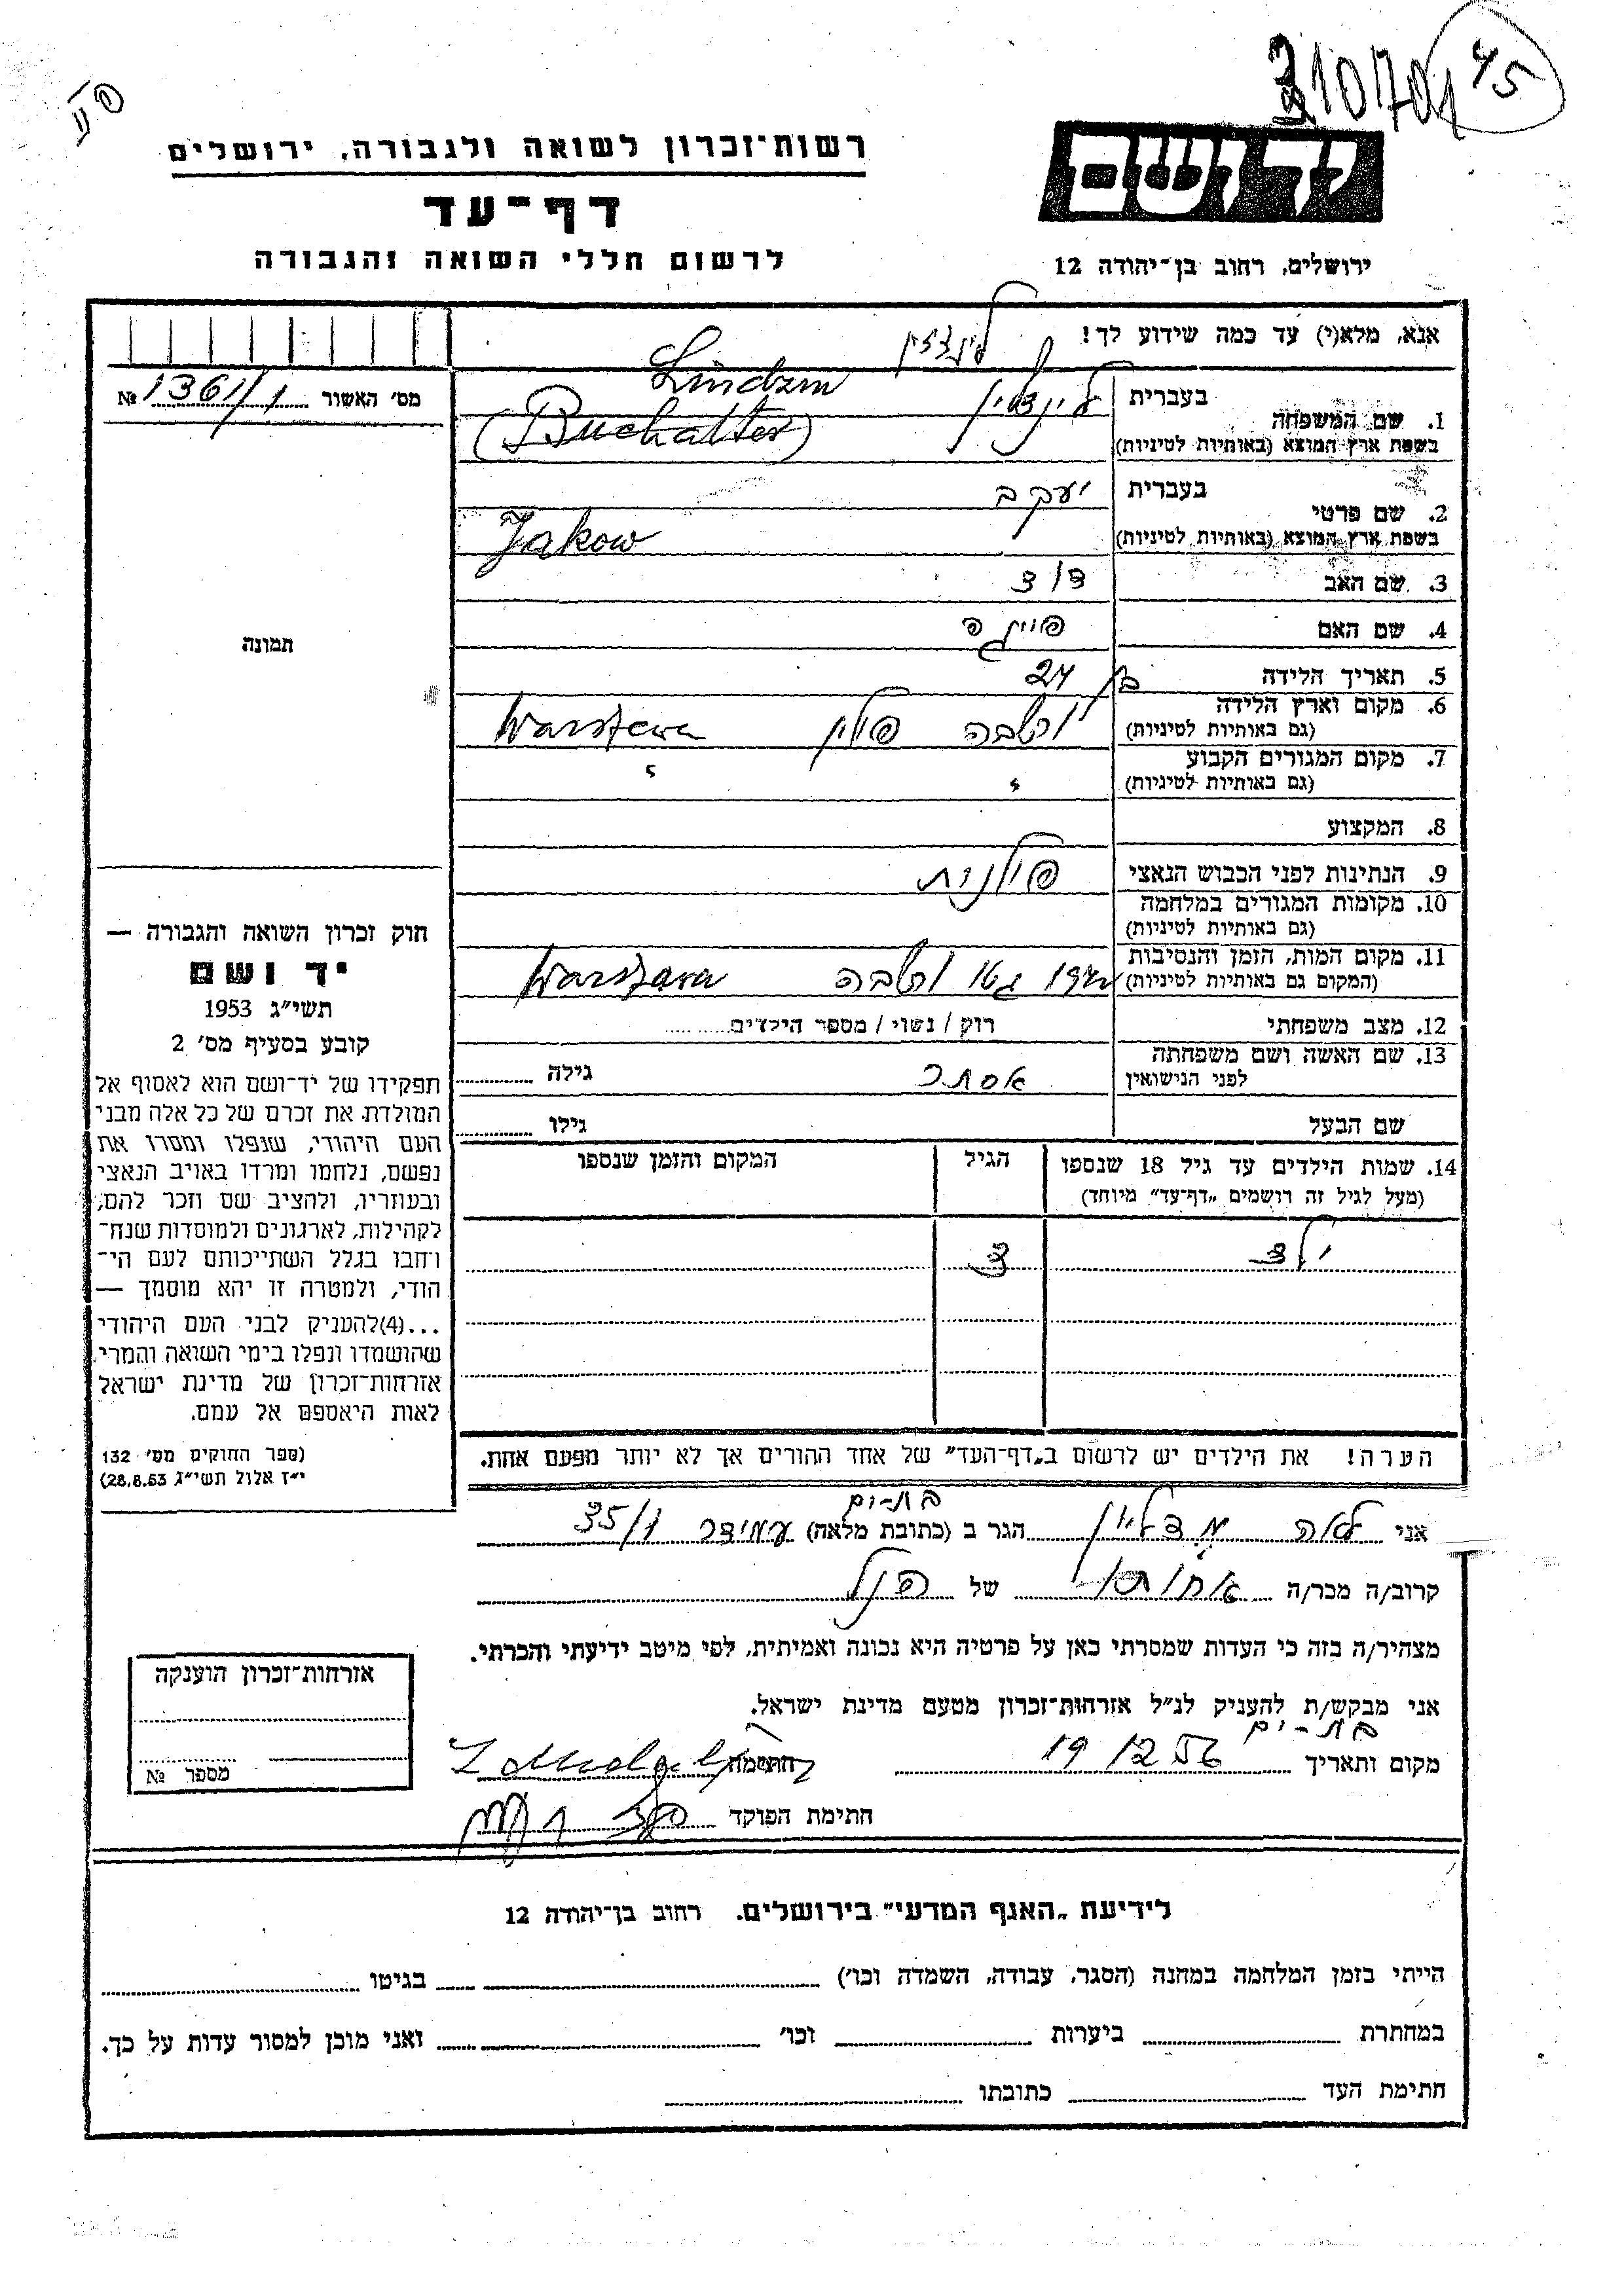 310701
45
רשות־זכרון לשואה ולגבורה, ירושלים
דף־עד
לרשום חללי השואה והגבורה
יד ושם
ירושלים, רחוב בן־יהודה 12
אנא, מלא(י) עד כמה שידוע לך!
לינדזין
מס׳ האשור 1361/1 №
1. שם המשפחה
בעברית
בשפת ארץ המוצא (באותיות לטיניות)
Lindzin
(Buchalter)
2. שם פרטי
בעברית יעקב
בשפת ארץ המוצא (באותיות לטיניות)
Jakow
3. שם האב דוד
4. שם האם
5. תאריך הלידה בן 24
6. מקום וארץ הלידה
(גם באותיות לטיניות)
ורשבה פולין Warszawa
7. מקום המגורים הקבוע
(גם באותיות לטיניות)
8. המקצוע
9. הנתינות לפני הכבוש הנאצי פולנית
10. מקומות המגורים במלחמה
(גם באותיות לטיניות)
11. מקום המות, הזמן והנסיבות
(המקום גם באותיות לטיניות)
גטו ורשבה Warszawa
12. מצב משפחתי רוק / נשוי / מספר הילדים
13. שם האשה ושם משפחתה
לפני הנישואין
אסתר גילה
שם הבעל גילו
14. שמות הילדים עד גיל 18 שנספו
(מעל לגיל זה רושמים „דף־עד״ מיוחד)
הגיל
המקום והזמן שנספו
ילד 3
הערה! את הילדים יש לרשום ב„דף־העד״ של אחד ההורים אך לא יותר מפעם אחת.
תמונה
חוק זכרון השואה והגבורה —
יד ושם
תשי״ג 1953
קובע בסעיף מס׳ 2
תפקידו של יד־ושם הוא לאסוף אל
המולדת את זכרם של כל אלה מבני
העם היהודי, שנפלו ומסרו את
נפשם, נלחמו ומרדו באויב הנאצי
ובעוזריו, ולהציב שם וזכר להם,
לקהילות, לארגונים ולמוסדות שנח־
רחבו בגלל השתייכותם לעם הי־
הודי, ולמטרה זו יהא מוסמך —
...(4) להעניק לבני העם היהודי
שהושמדו ונפלו בימי השואה והמרי
אזרחות־זכרון של מדינת ישראל
לאות היאספם אל עמם.
(ספר החוקים מס׳ 132
י״ז אלול תשי״ג 28.8.53)
בת-ים
אני לאה הגר ב (כתובת מלאה) עמידר 35/1
קרוב/ה מכר/ה אחותו של הנ״ל
מצהיר/ה בזה כי העדות שמסרתי כאן על פרטיה היא נכונה ואמיתית, לפי מיטב ידיעתי והכרתי.
אני מבקש/ת להעניק לנ״ל אזרחות־זכרון מטעם מדינת ישראל.
בת-ים
מקום ותאריך 19 12 56 חתימה
חתימת הפוקד
אזרחות־זכרון הוענקה
מספר №
לידיעת „האגף המדעי״ בירושלים. רחוב בן־יהודה 12
הייתי בזמן המלחמה במחנה (הסגר, עבודה, השמדה וכו׳) בגיטו
במחתרת ביערות וכו׳ ואני מוכן למסור עדות על כך.
חתימת העד כתובתו